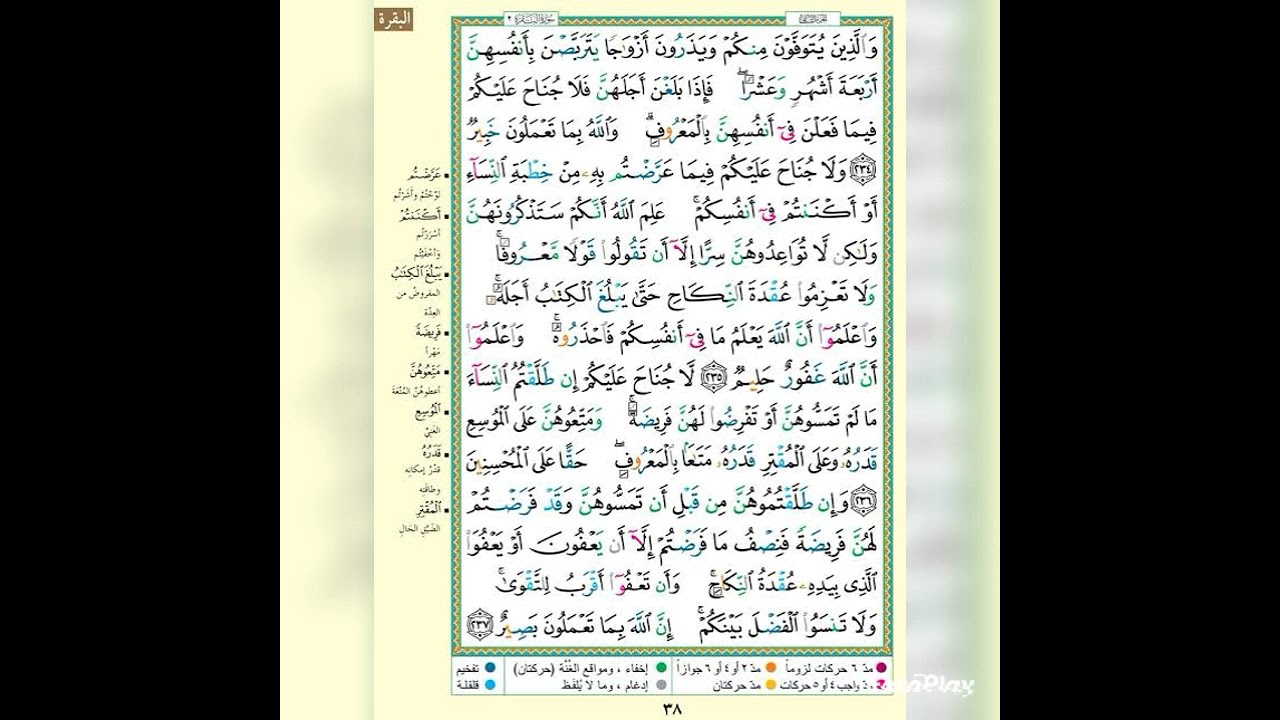 البقرة
سورة البقرة ٢
الجزء الثاني
وَالَّذِينَ يُتَوَفَّوْنَ مِنكُمْ وَيَذَرُونَ أَزْوَٰجًا يَتَرَبَّصْنَ بِأَنفُسِهِنَّ
أَرْبَعَةَ أَشْهُرٍ وَعَشْرًا ۖ فَإِذَا بَلَغْنَ أَجَلَهُنَّ فَلَا جُنَاحَ عَلَيْكُمْ
فِيمَا فَعَلْنَ فِىٓ أَنفُسِهِنَّ بِالْمَعْرُوفِ ۗ وَاللَّهُ بِمَا تَعْمَلُونَ خَبِيرٌ
﴿٢٣٤﴾ وَلَا جُنَاحَ عَلَيْكُمْ فِيمَا عَرَّضْتُم بِهِۦ مِنْ خِطْبَةِ النِّسَآءِ
أَوْ أَكْنَنتُمْ فِىٓ أَنفُسِكُمْ ۚ عَلِمَ اللَّهُ أَنَّكُمْ سَتَذْكُرُونَهُنَّ
وَلَٰكِن لَّا تُوَاعِدُوهُنَّ سِرًّا إِلَّآ أَن تَقُولُوا۟ قَوْلًا مَّعْرُوفًا ۚ
وَلَا تَعْزِمُوا۟ عُقْدَةَ النِّكَاحِ حَتَّىٰ يَبْلُغَ الْكِتَٰبُ أَجَلَهُۥ ۚ
وَاعْلَمُوٓا۟ أَنَّ اللَّهَ يَعْلَمُ مَا فِىٓ أَنفُسِكُمْ فَاحْذَرُوهُ ۚ وَاعْلَمُوٓا۟
أَنَّ اللَّهَ غَفُورٌ حَلِيمٌ ﴿٢٣٥﴾ لَّا جُنَاحَ عَلَيْكُمْ إِن طَلَّقْتُمُ النِّسَآءَ
مَا لَمْ تَمَسُّوهُنَّ أَوْ تَفْرِضُوا۟ لَهُنَّ فَرِيضَةً ۚ وَمَتِّعُوهُنَّ عَلَى الْمُوسِعِ
قَدَرُهُۥ وَعَلَى الْمُقْتِرِ قَدَرُهُۥ مَتَٰعًا بِالْمَعْرُوفِ ۖ حَقًّا عَلَى الْمُحْسِنِينَ
﴿٢٣٦﴾ وَإِن طَلَّقْتُمُوهُنَّ مِن قَبْلِ أَن تَمَسُّوهُنَّ وَقَدْ فَرَضْتُمْ
لَهُنَّ فَرِيضَةً فَنِصْفُ مَا فَرَضْتُمْ إِلَّآ أَن يَعْفُونَ أَوْ يَعْفُوَا۟
الَّذِى بِيَدِهِۦ عُقْدَةُ النِّكَاحِ ۚ وَأَن تَعْفُوٓا۟ أَقْرَبُ لِلتَّقْوَىٰ ۚ
وَلَا تَنسَوُا۟ الْفَضْلَ بَيْنَكُمْ ۚ إِنَّ اللَّهَ بِمَا تَعْمَلُونَ بَصِيرٌ ﴿٢٣٧﴾
عَرَّضْتُم
لَوَّحْتُمْ وأَشَرْتُم
أَكْنَنتُمْ
أسْرَرْتُم
وأخْفَيْتُم
يَبْلُغَ الْكِتَٰبُ
المفروضُ من
العِدّة
فَرِيضَةً
مَهْراً
مَتِّعُوهُنَّ
أعطوهُنَّ المُتْعَةَ
الْمُوسِعِ
الغَنِيِّ
قَدَرُهُ
قَدْرُ إمكانِه
وطاقَتِه
الْمُقْتِرِ
الضَّيِّقِ الحَالِ
مدّ ٦ حركات لزوماً
مدّ ٢ أو ٤ أو ٦ جوازاً
إخفاء ، ومواقع الغُنَّة (حركتان)
تفخيم
مدّ واجب ٤ أو ٥ حركات
مدّ حركتان
إدغام ، وما لا يُلفَظ
قلقلة
٣٨